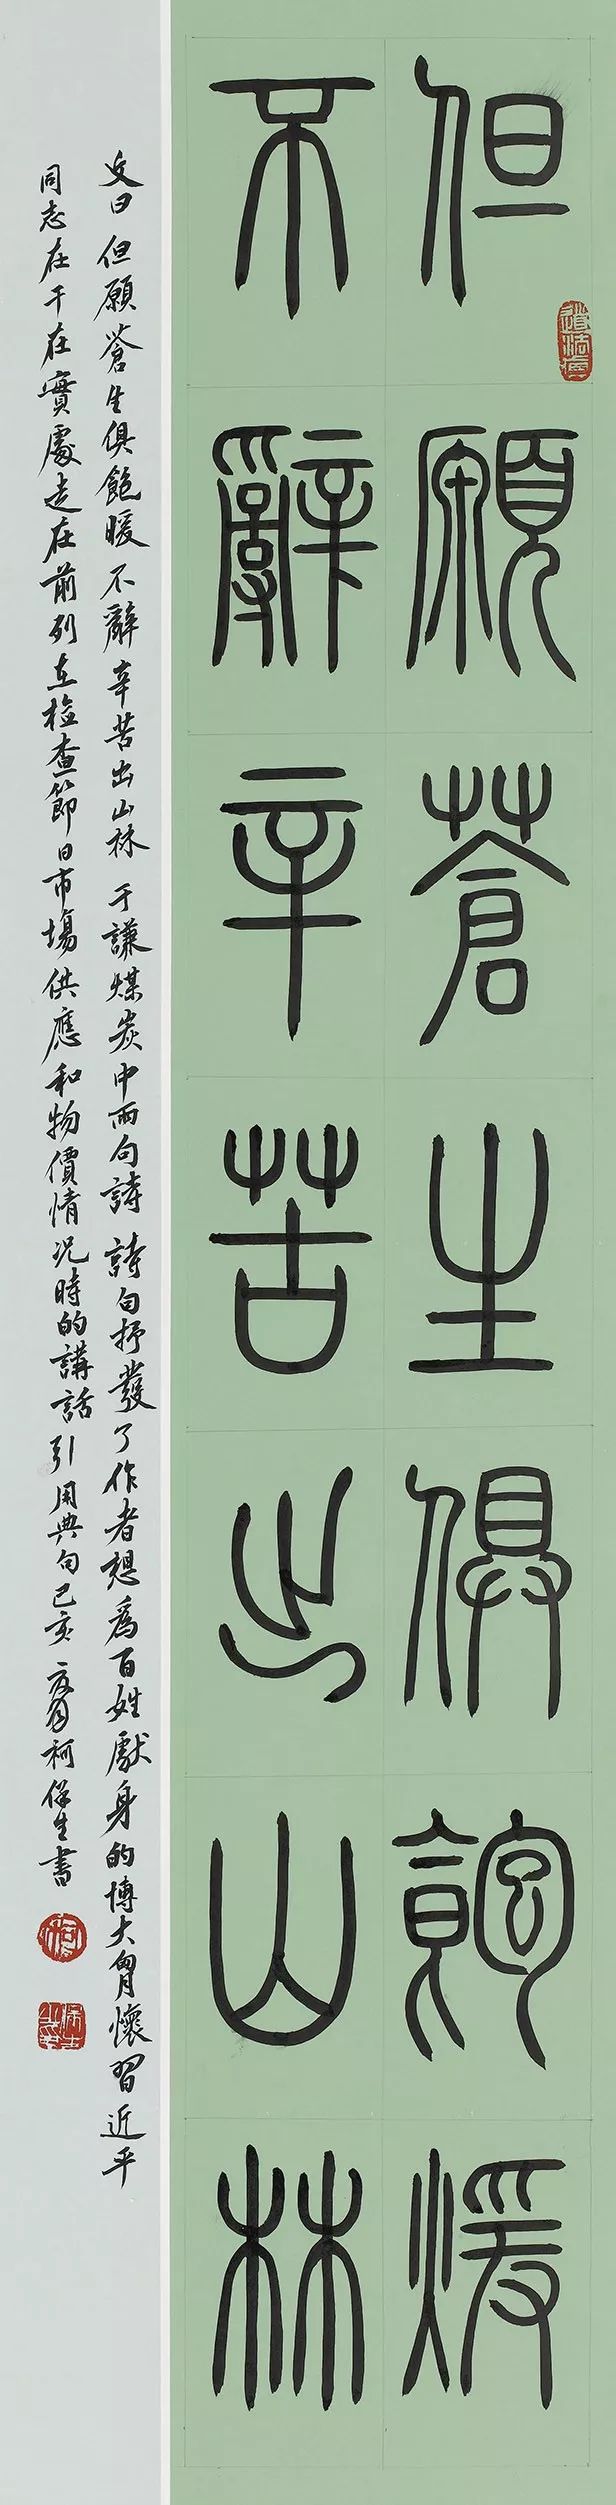 但願蒼生俱飽煖
不辭辛苦出山林
文曰但願蒼生俱飽暖不辭辛苦出山林于謙煤炭中兩句詩詩句抒發了作者想爲百姓獻身的博大胷懷習近平
同志在干在實處走在前列在檢查節日市場供應和物價情况時的講話引用典句己亥夏月柯保生書